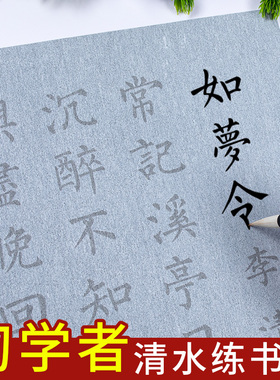 如夢令 李
常記溪亭
沉醉不知
興盡晚回
初学者
清水练书